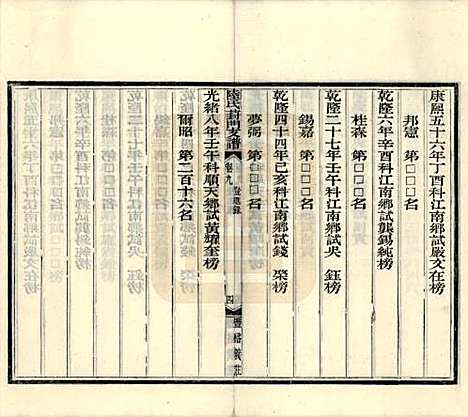 康熙五十六年丁酉科江南鄉試嚴文在榜
邦憲 第□□□名
乾隆六年辛酉科江南鄉試龔錫純榜
桂森 第□□□名
乾隆二十七年壬午科江南鄉試吳 鈺榜
錫嘉 第□□□名
乾隆四十四年己亥科江南鄉試錢 棨榜
夢弼 第□□□名
陸氏葑門支譜 卷九 登進錄 四 豐裕義莊
光緒八年壬午科順天鄉試黃耀奎榜
爾昭 第二百十六名